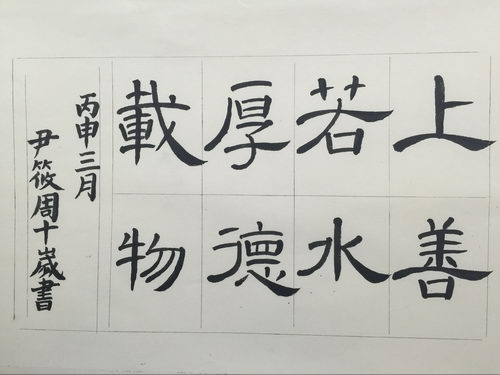 上善
若水
厚德
載物
丙申三月
尹筱周十歲書